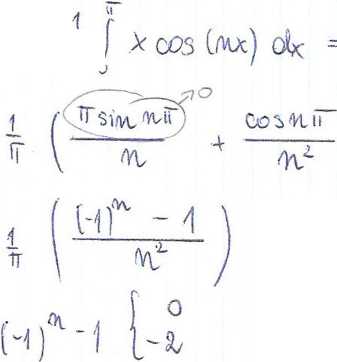 1 ∫₀^π x cos (nx) dx =
1/π ( π sin nπ / n → 0 + cos nπ / n²
1/π ( ((-1)ⁿ - 1) / n² )
(-1)ⁿ - 1 { 0
-2